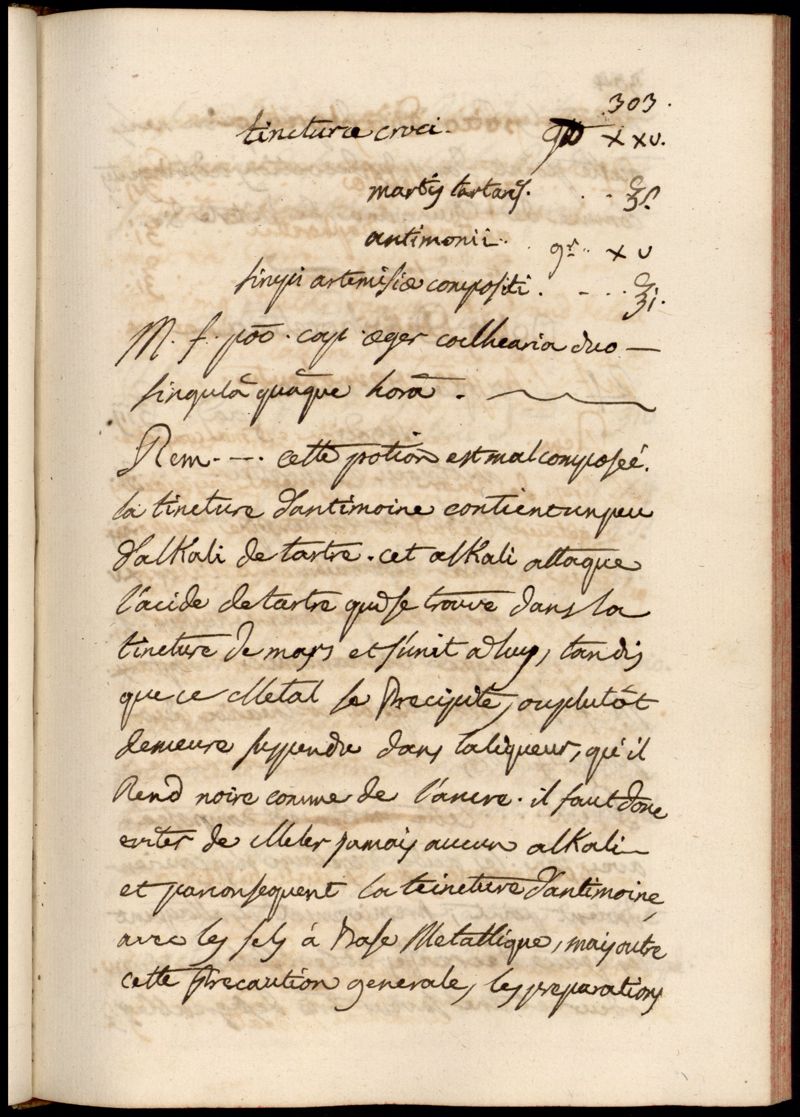 .303.
tincturæ croci. gtt xxv.
martis tartaris. . . ʒſ.
antimonii. gr.. xv
sirupi artemisiæ compositi. . - . . ʒi.
M. f. poō. capi. æger cochlearia duo —
singulā quāque horā.
Rem. - - . cette potion est mal composeé.
la tincture d'antimoine contient un peu
d'alkali de tartre. cet alkali attaque
l'acide de tartre qui se trouve dans la
tincture de mars et s'unit a luy, tandis
que ce Metal se precipite, ou plutôt
demeure suspendu dans la liqueur, qu'il
Rend noire comme de l'ancre. il faut donc
eviter de Meler jamais aucun alkali —
et par consequent la teincture d'antimoine,
avec les sels á Base Metallique, mais outre
cette precaution generale, les preparations